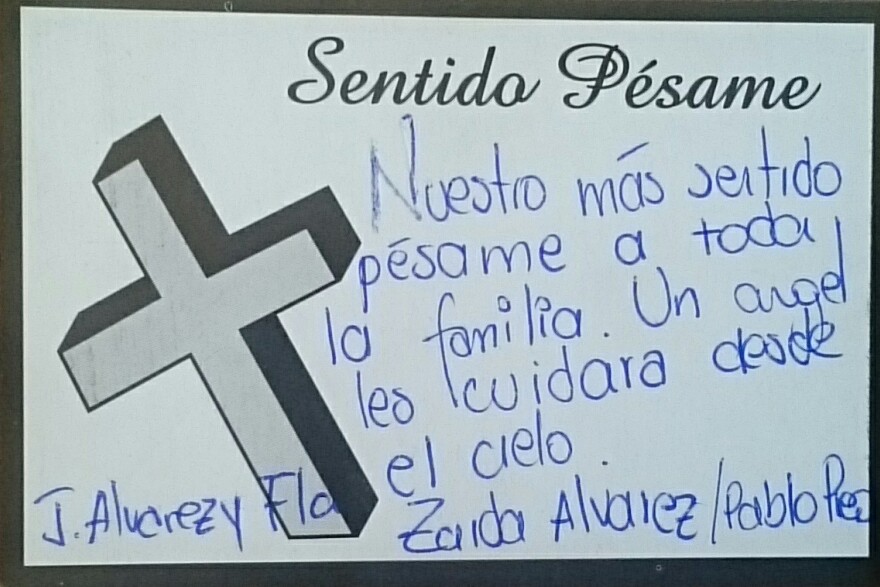 Sentido Pésame
Nuestro más sentido
pésame a toda
la familia. Un angel
les cuidara desde
el cielo.
J. Alvarez y Fla Zaida Alvarez / Pablo